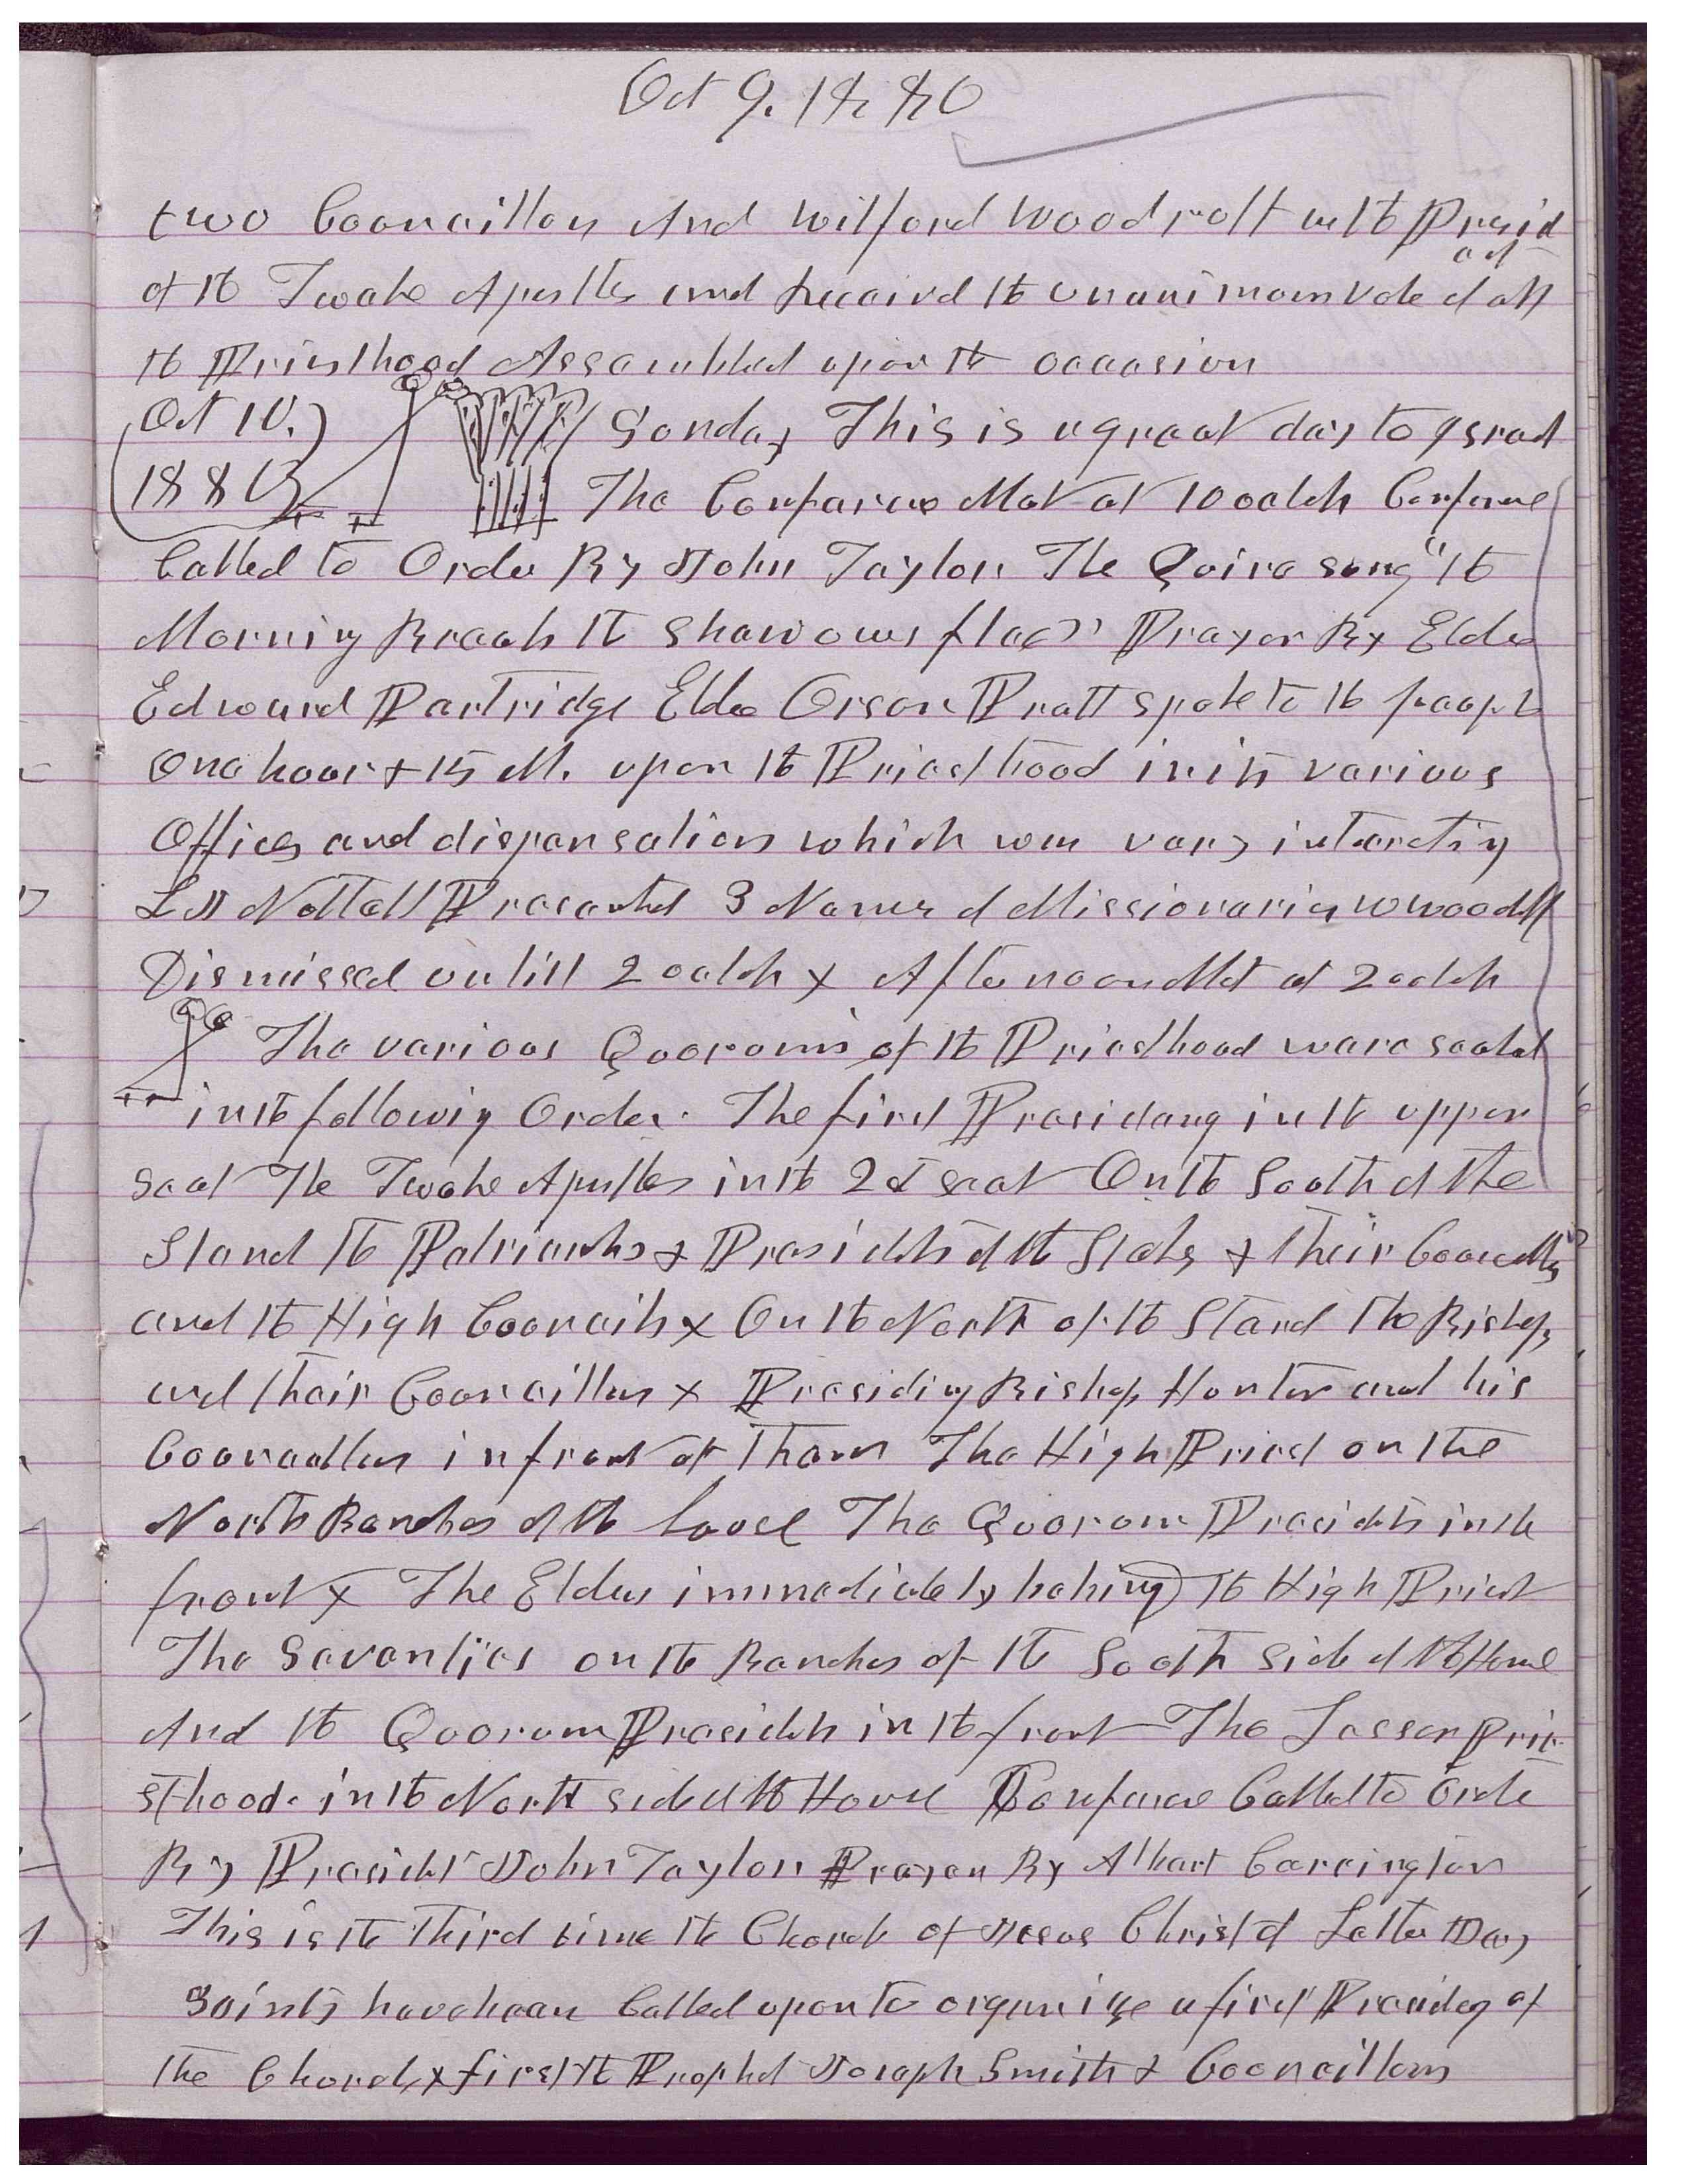 Oct 9. 1880
two Councillors And Wilford Woodruff as the Presid
ent
of the Twelve Apostles and Received the unanimous vote of all
the Priesthood Assembled upon the occasion
Oct 10. Sunday This is a great day to Israel
1880 The Conference Met at 10 oclok Conference
Called to Order By John Taylor The Quire sung "the
Morning Breaks the shadows flee" Prayer By Elder
Edward Partridge Elder Orson Pratt spoke to the people
One hour & 15 M. upon the Priesthood in its various
Offices and dispensations which was very interesting
L J Nuttall Presented 3 Names of Missionaries W Woodruff
Dismissed untill 2 oclok x Afternoon Met at 2 oclok
The various Quorums of the Priesthood were seated
in the following Order. The first Presidency in the upper
seat The Twelve Apostles in the 2d seat On the South of the
Stand the Patriarchs & Presidets of the Stakes & their Councillors
and the High Councils x On the North of the Stand the Bishops
and their Councillors x Presiding Bishop Hunter and his
Councillors in front of them The High Priest on the
North Benches of the house The Quorum Presidets in the
front x The Elders immediately behing the High Priest
The Seventies on the Benches of the South side of the House
And the Quorum Presidets in the front The Lesser Prie
sthood. in the North side of the House Conference Called to Order
By Presidet John Taylor Prayer By Albert Carrington
This is the third time the Church of Jesus Christ of Latter Day
Saints have been Called upon to organize a first Presidency of
the Church, x first the Prophet Joseph Smith & Councillors